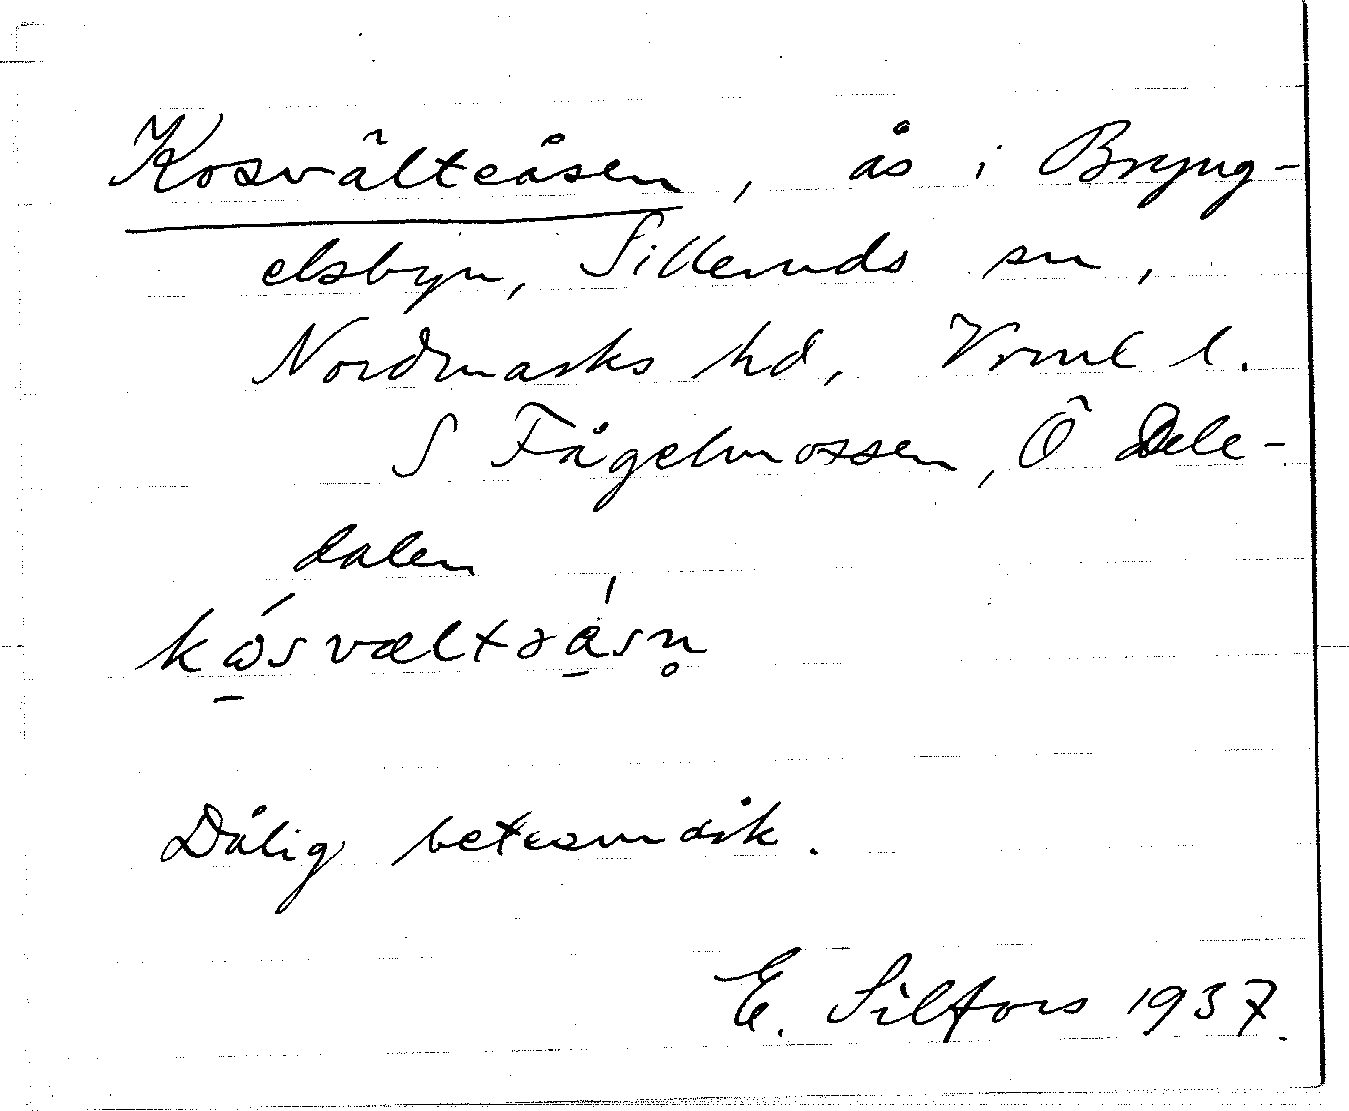 Kosvälteåsen, ås i Bryng-
elsbyn, Silleruds sn,
Nordmarks hd, Vrml l.
S Fågelmossen, Ö Dele-
dalen
Dålig betesmark.
E. Silfors 1937.